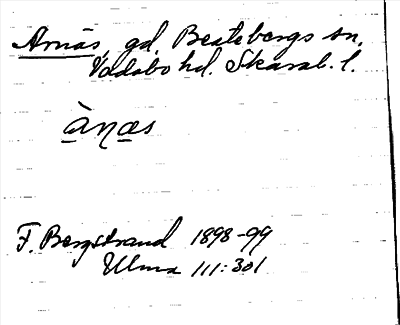 Arnäs, gd. Beatebergs sn.
Vadsbo hd. Skarab. l.
ànæs
F. Bergstrand 1898-99
Ulma 111:301